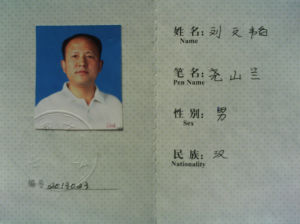 姓名：刘文韬
Name
笔名：尧山兰
Pen Name
性别：男
Sex
民族：汉
Nationality
编号